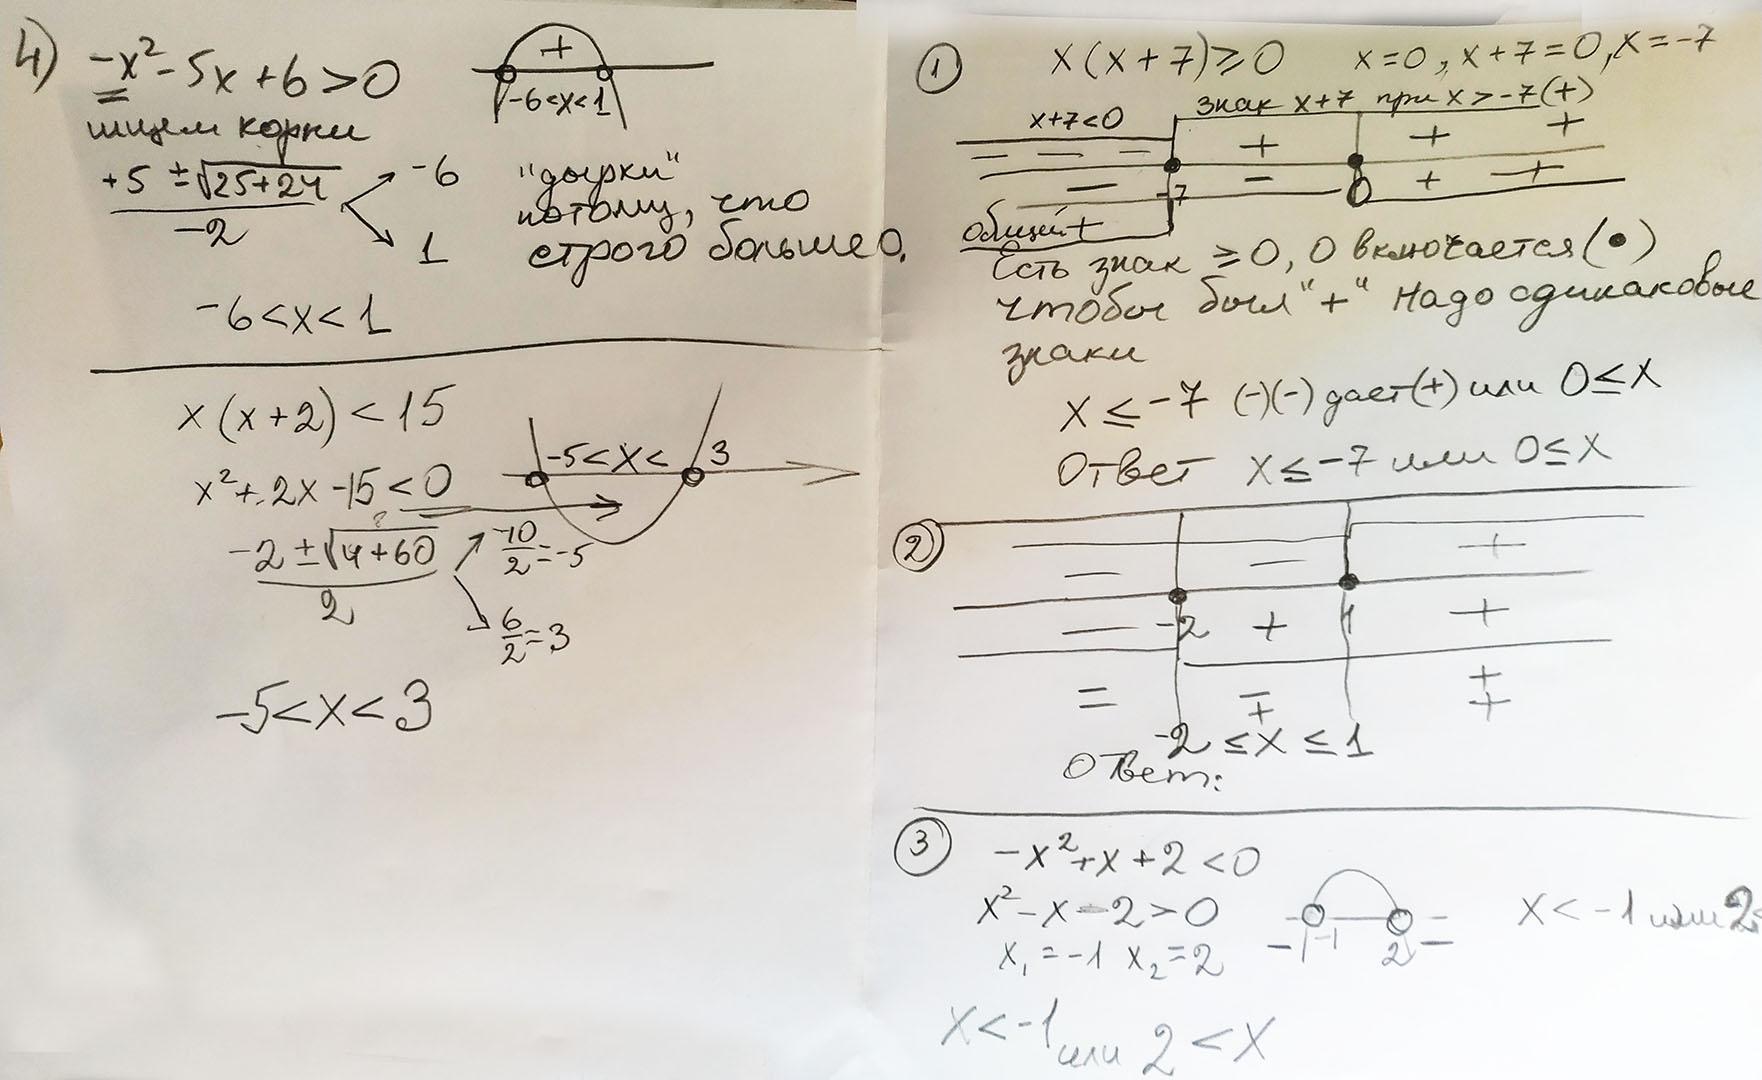 4) -x² - 5x + 6 > 0
ищем корни
+5 ± √25+24
-2
-6
1
+
-6<x<1
"дырки"
потому, что
строго больше 0.
-6 < x < 1
x (x + 2) < 15
x² + 2x - 15 < 0
-2 ± √4+60
2
-10/2 = -5
6/2 = 3
-5 < x < 3
-5 < x < 3
① x (x + 7) ≥ 0 x=0, x+7=0, x=-7
x+7<0 знак x+7 при x > -7 (+)
- - - - + + +
- -7 - 0 + +
общий +
Есть знак ≥ 0, 0 включается (•)
чтобы был "+" надо одинаковые
знаки
x ≤ -7 (-)(-) дает (+) или 0 ≤ x
Ответ x ≤ -7 или 0 ≤ x
②
- - +
- -2 + 1 +
- - - + + +
-2 ≤ x ≤ 1
Ответ:
③ -x² + x + 2 < 0
x² - x - 2 > 0
x₁ = -1 x₂ = 2
- -1 2 -
x < -1 или 2<
x < -1 или 2 < x